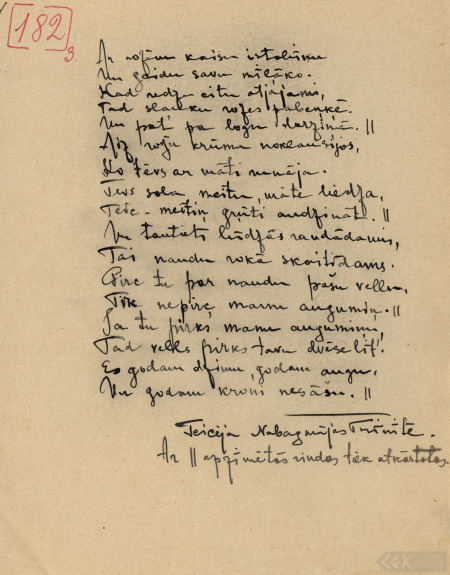 182
3.
Ar rožēm kaisu istabiņu
Un gaidu savu mīļāko.
Kad redzu citu atjājami,
Tad slauku rozes pabeņķē.
Un pat' pa logu darziņā. ||
Aiz rožu krūma noklausījos,
Ko tēvs ar māti runāja.
Tevs sola meitu, māte liedza,
Teic - meitiņ grūti audzināt. ||
Un tautiets lūdzās raudādams,
Tai naudu rokā skaitīdams.
Pirc tu par naudu pašu vellu,
Tik nepirc manu augumiņ. ||
Ja tu pirks manu augumiņu,
Tad vells pirks tavu dvēselīt'.
Es godam dzimu, godam augu,
Un godam kroni nesāšu. ||
Teicēja Nabagmājas Trīnīte.
Ar || apzīmētās rindas tiek atkārtotas.